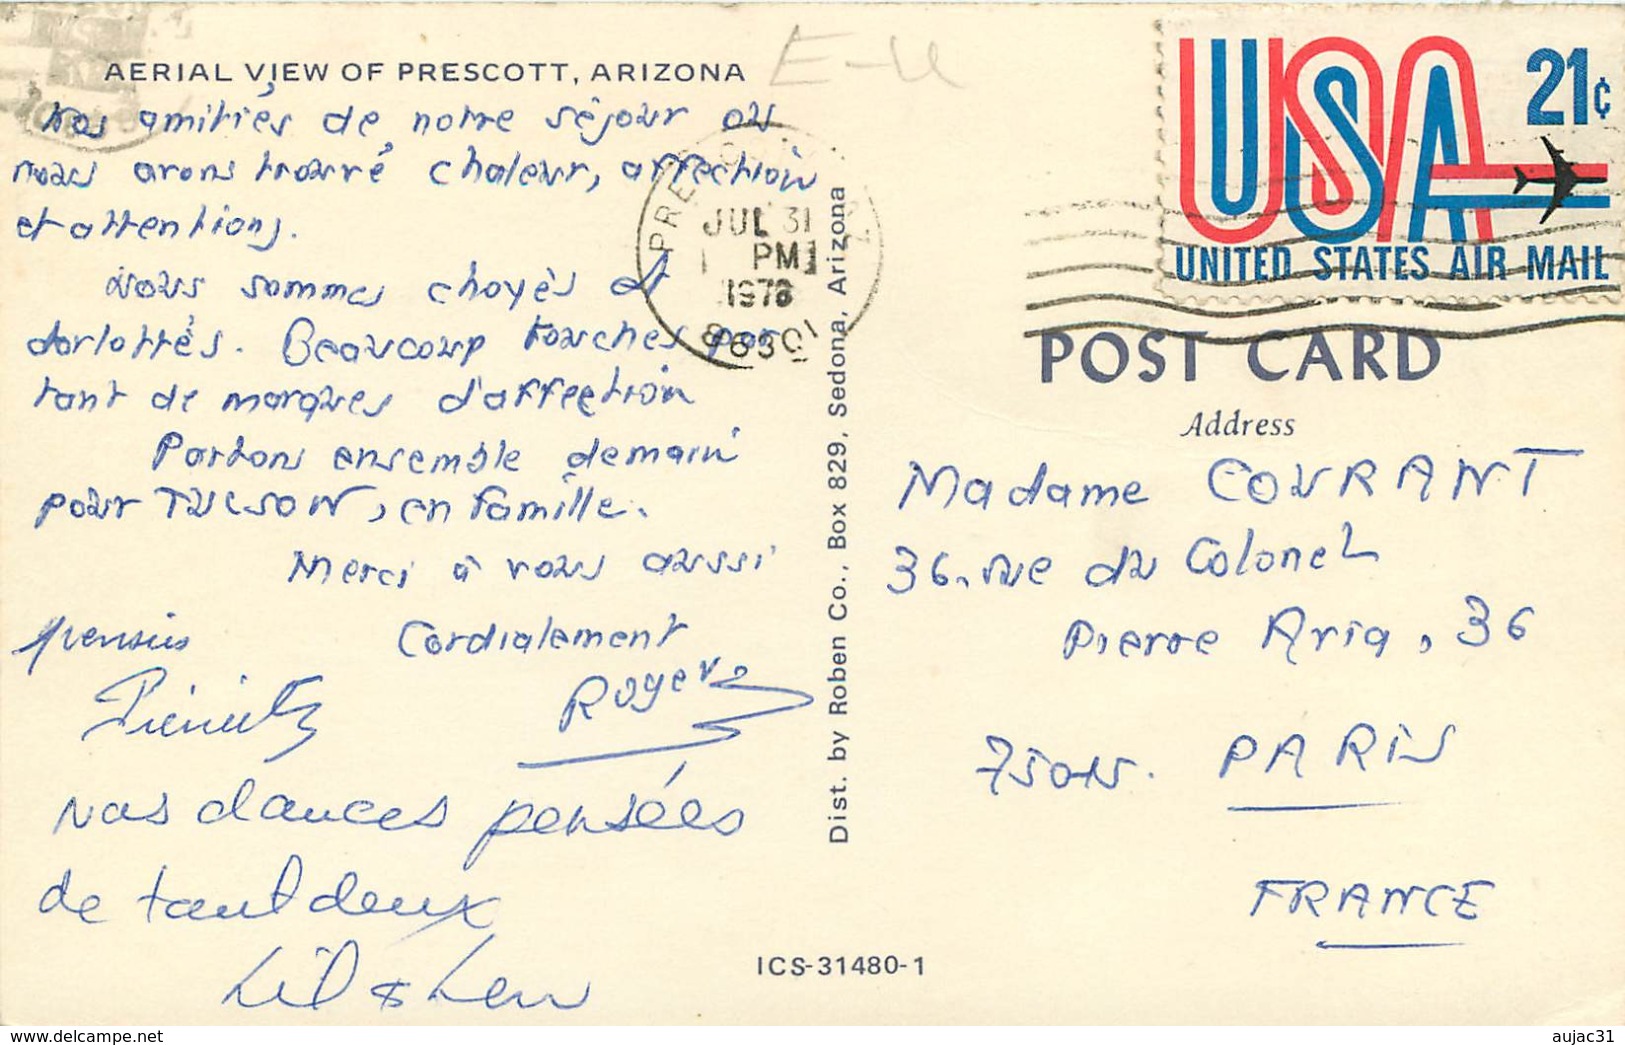 AERIAL VIEW OF PRESCOTT, ARIZONA
E-U
Nos amitiés de notre séjour où
nous avons trouvé chaleur, affection
et attentions.
Nous sommes choyés et
dorlottés. Beaucoup touchés par
tant de marques d'affection
Partons ensemble demain
pour TUCSON, en famille.
Merci à vous aussi
pensées
Cordialement
Roger
Nos douces pensées
de tout deux
Lil & Leu
Dist. by Roben Co., Box 829, Sedona, Arizona
ICS-31480-1
JUL 31
PM
1978
86301
USA 21¢
UNITED STATES AIR MAIL
POST CARD
Address
Madame COURANT
36, rue du Colonel
Pierre Avia, 36
75015. PARIS
FRANCE
www.delcampe.net
aujac31